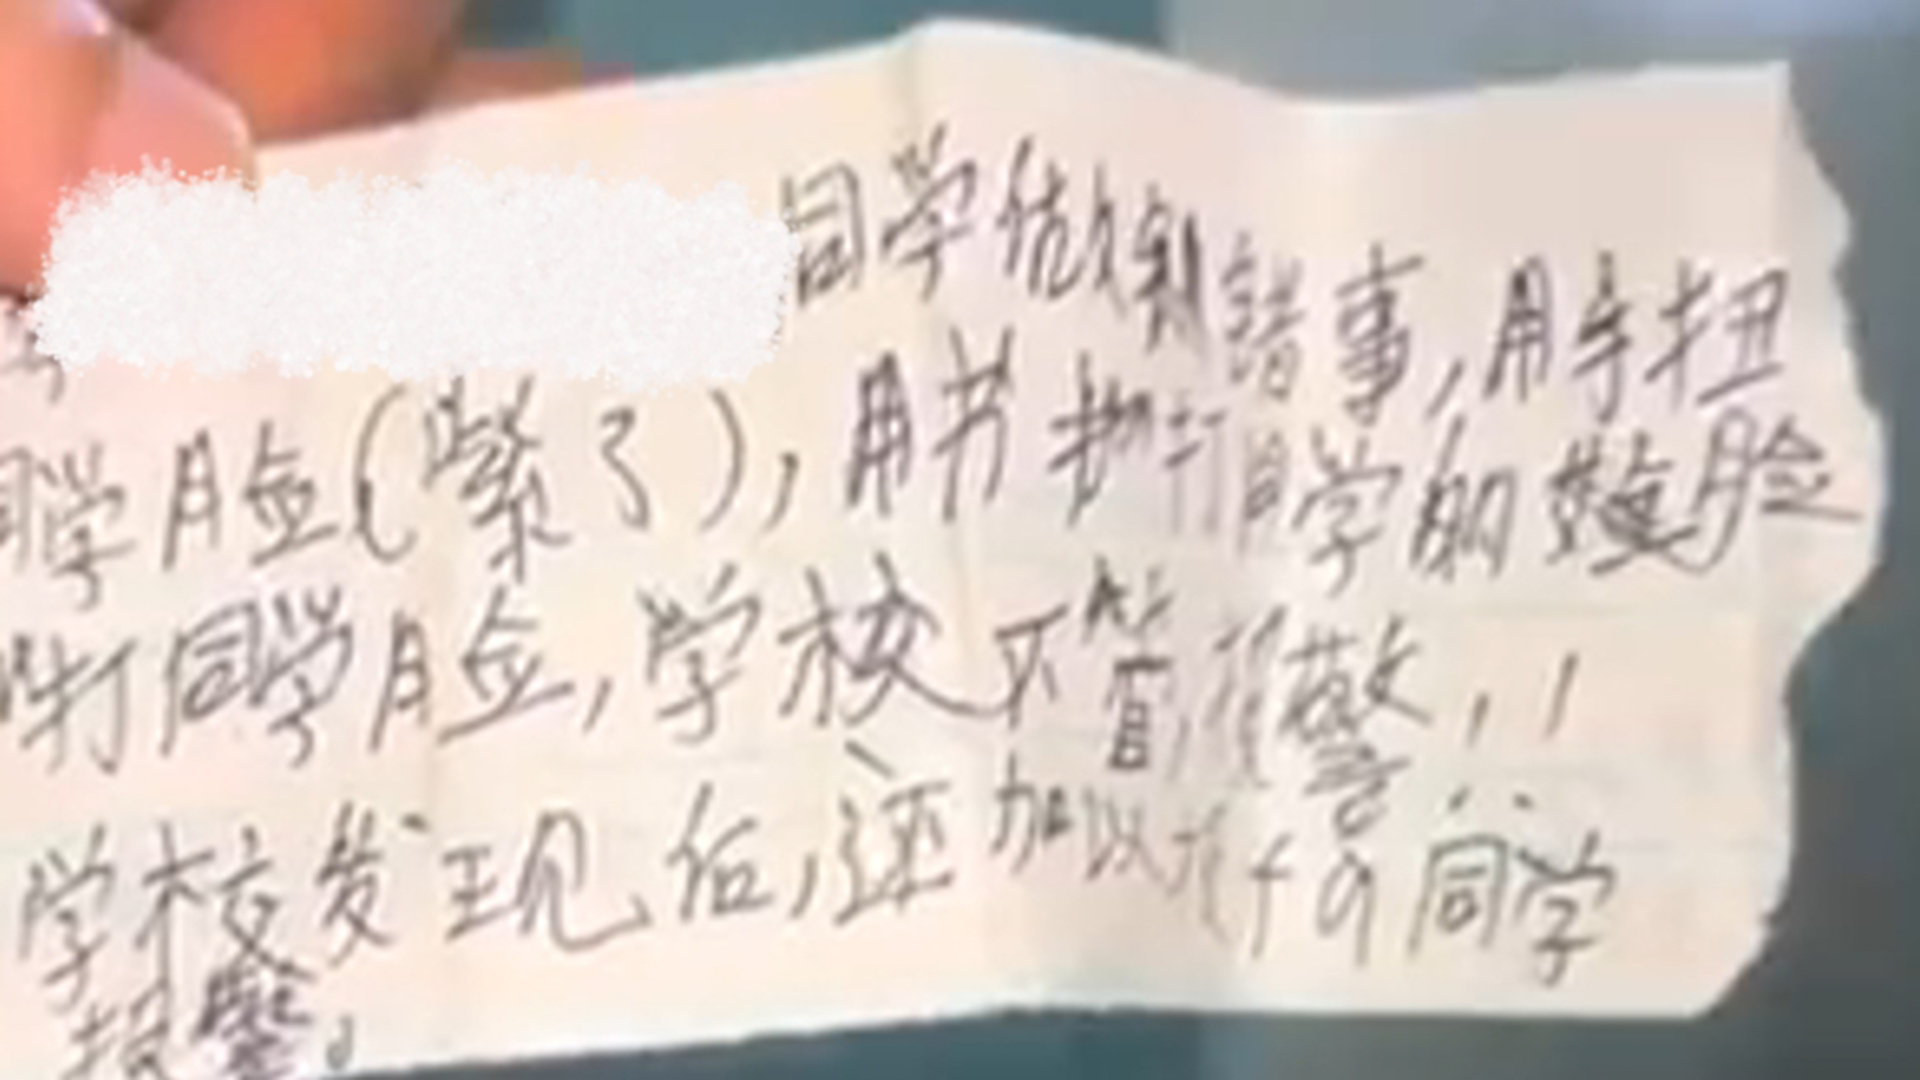 同学做到错事,用手扭
同学脸(紫了),用书抽打同学的脸
打同学脸,学校不管,报警,!
学校发现后,还加以fa同学
报警。